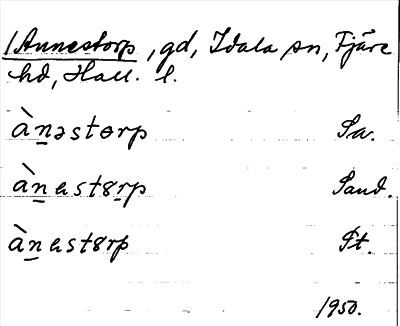 /Annestorp, gd, Idala sn, Fjäre
hd, Hall. l.
ànəstɵrp Sa.
ànɐstɞrp Sand.
ànɐstɞrp Pt.
1950.